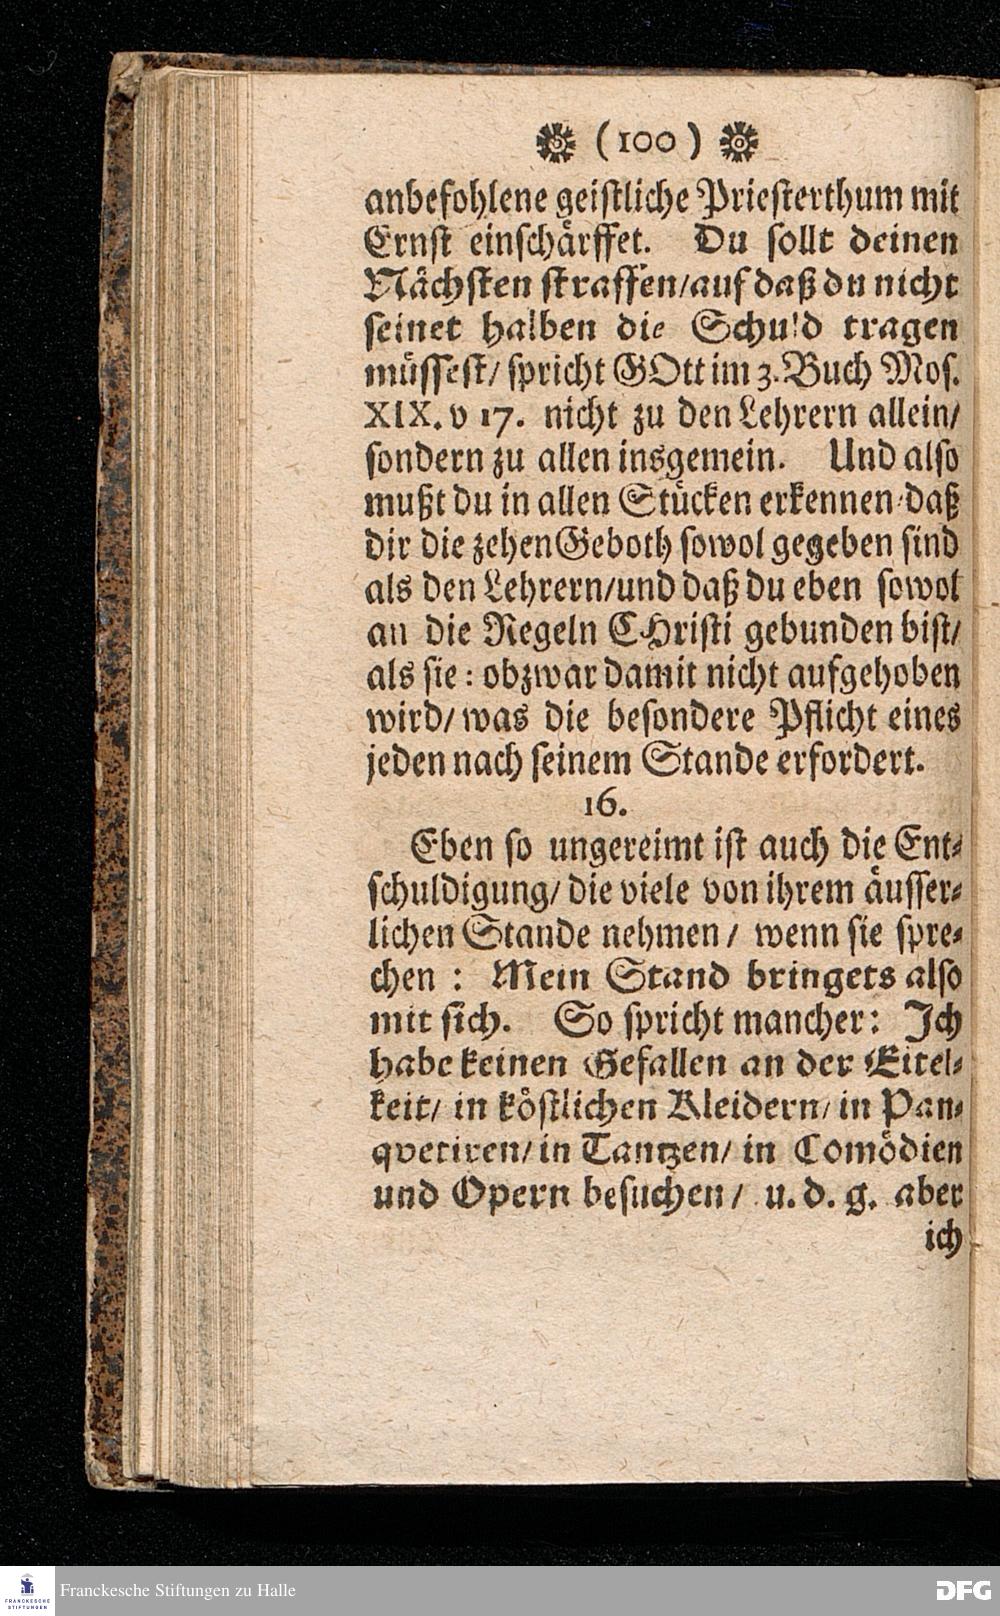 (100)
anbefohlene geistliche Priesterthum mit
Ernst einschärffet. Du sollt deinen
Nächsten straffen/auf daß du nicht
seinet halben die Schuld tragen
müssest/ spricht GOtt im 3. Buch Mos.
XIX. v 17. nicht zu den Lehrern allein/
sondern zu allen insgemein. Und also
mußt du in allen Stücken erkennen/daß
dir die zehen Geboth sowol gegeben sind
als den Lehrern/und daß du eben sowol
an die Regeln CHristi gebunden bist/
als sie: obzwar damit nicht aufgehoben
wird/ was die besondere Pflicht eines
jeden nach seinem Stande erfordert.
16.
Eben so ungereimt ist auch die Ent-
schuldigung/ die viele von ihrem äusser-
lichen Stande nehmen/ wenn sie spre-
chen: Mein Stand bringets also
mit sich. So spricht mancher: Ich
habe keinen Gefallen an der Eitel-
keit/ in köstlichen Kleidern/ in Pan-
qvetiren/ in Tantzen/ in Comödien
und Opern besuchen/ u. d. g. aber
ich
FRANCKESCHE
STIFTUNGEN
Franckesche Stiftungen zu Halle
DFG